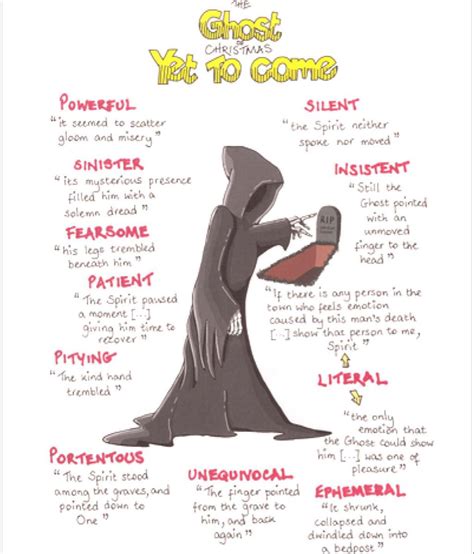 THE
Ghost
OF
CHRISTMAS
Yet To Come
POWERFUL
"it seemed to scatter
gloom and misery"
SINISTER
"its mysterious presence
filled him with a
solemn dread"
FEARSOME
"his legs trembled
beneath him"
PATIENT
"The Spirit paused
a moment [...]
giving him time to
recover"
PITYING
"The kind hand
trembled"
PORTENTOUS
"The Spirit stood
among the graves, and
pointed down to
One"
UNEQUIVOCAL
"The finger pointed
from the grave to
him, and back
again"
SILENT
"the Spirit neither
spoke nor moved"
INSISTENT
"Still the
Ghost pointed
with an
unmoved
finger to the
head"
RIP
"If there is any person in the
town who feels emotion
caused by this man's death
[...] show that person to me,
Spirit"
LITERAL
"the only
emotion that
the Ghost could show
him [...] was one of
pleasure"
EPHEMERAL
"It shrunk,
collapsed and
dwindled down into
a bedpost"